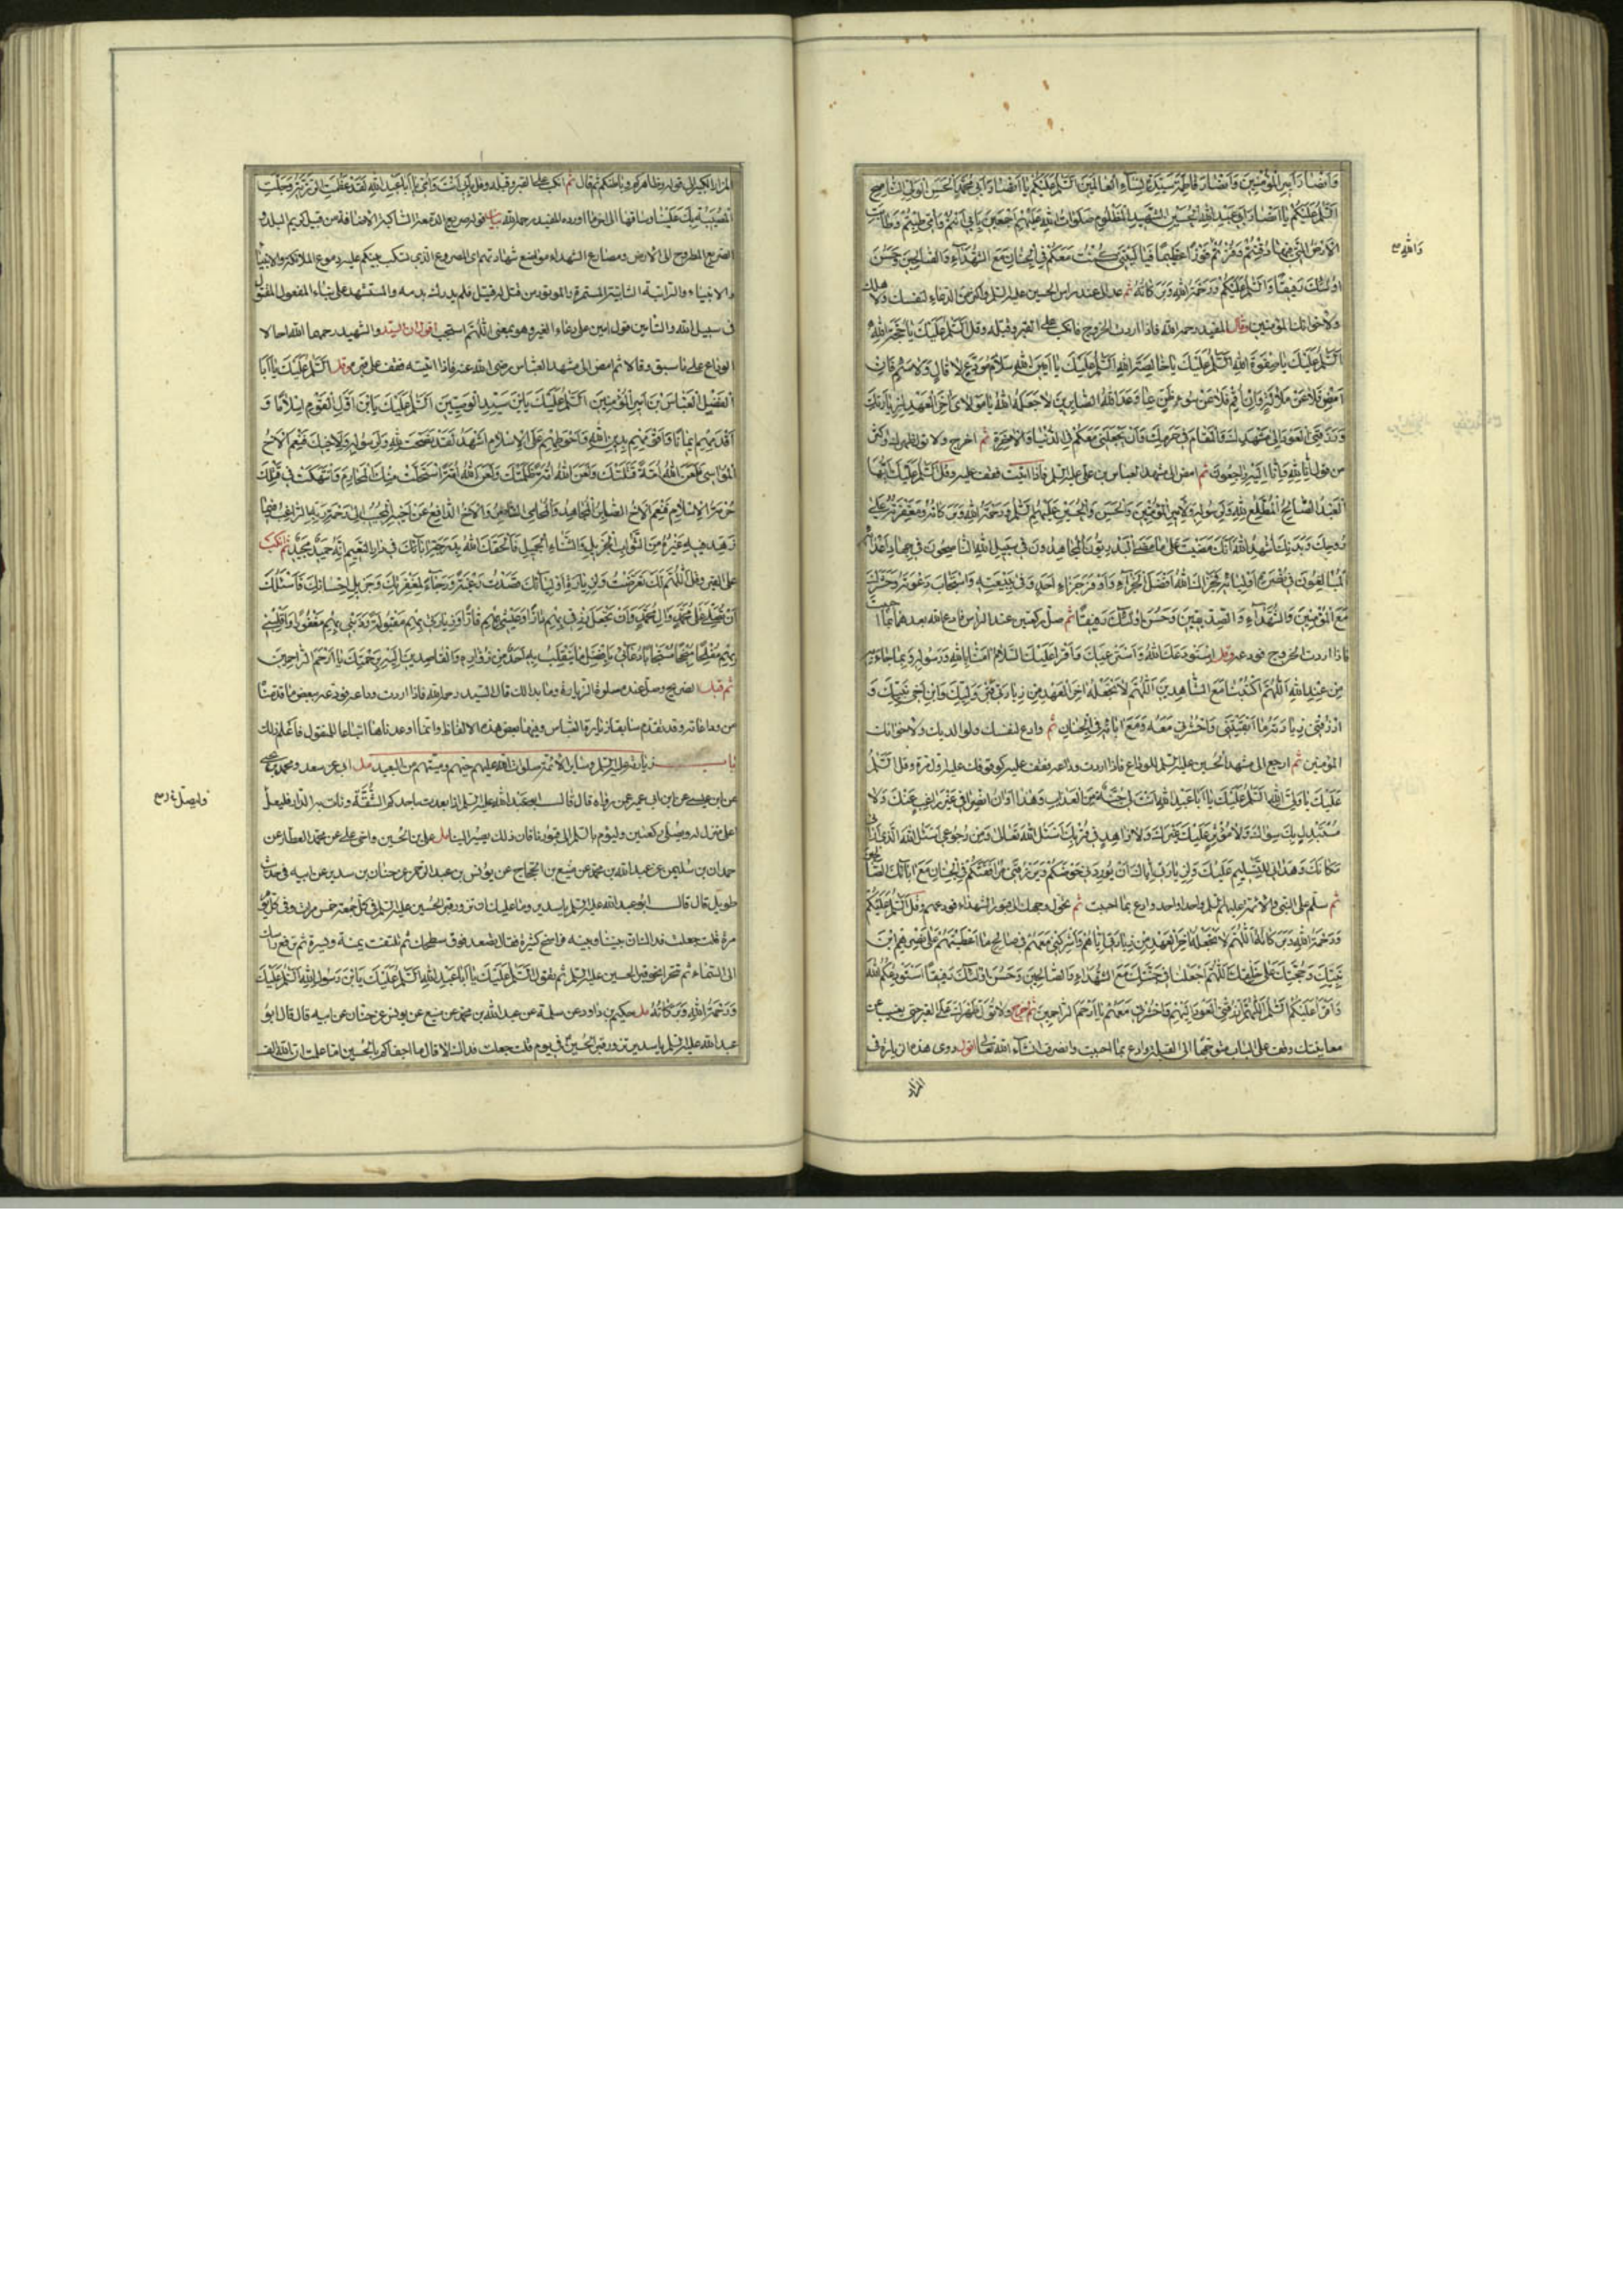 وَأَنْصَارَ أَمِيرِ الْمُؤْمِنِينَ وَأَنْصَارَ فَاطِمَةَ سَيِّدَةِ نِسَاءِ الْعَالَمِينَ السَّلَامُ عَلَيْكُمْ يَا أَنْصَارَ أَبِي مُحَمَّدٍ الْحَسَنِ الْوَلِيِّ النَّاصِحِ
السَّلَامُ عَلَيْكُمْ يَا أَنْصَارَ أَبِي عَبْدِ اللهِ الْحُسَيْنِ الشَّهِيدِ الْمَظْلُومِ صَلَوَاتُ اللهِ عَلَيْهِمْ أَجْمَعِينَ بِأَبِي أَنْتُمْ وَأُمِّي طِبْتُمْ وَطَابَتِ
الْأَرْضُ الَّتِي فِيهَا دُفِنْتُمْ وَفُزْتُمْ فَوْزًا عَظِيمًا فَيَا لَيْتَنِي كُنْتُ مَعَكُمْ فِي الْجِنَانِ مَعَ الشُّهَدَاءِ وَالصَّالِحِينَ وَحَسُنَ
أُولَئِكَ رَفِيقًا وَالسَّلَامُ عَلَيْكُمْ وَرَحْمَةُ اللهِ وَبَرَكَاتُهُ ثم عد الى عند راس الحسين عليه السلم واكثر من الدعاء لنفسك ولاهلك
ولاخوانك المؤمنين وقال المفيد رحمه الله فاذا اردت الخروج فانكب على القبر وقبله وقل السَّلَامُ عَلَيْكَ يَا حُجَّةَ اللهِ
السَّلَامُ عَلَيْكَ يَا صَفْوَةَ اللهِ السَّلَامُ عَلَيْكَ يَا خَالِصَةَ اللهِ السَّلَامُ عَلَيْكَ يَا أَمِينَ اللهِ سَلَامَ مُوَدِّعٍ لَا قَالٍ وَلَا سَئِمٍ فَإِنْ
أَمْضِ فَلَا عَنْ مَلَالَةٍ وَإِنْ أُقِمْ فَلَا عَنْ سُوءِ ظَنٍّ بِمَا وَعَدَ اللهُ الصَّابِرِينَ لَا جَعَلَهُ اللهُ يَا مَوْلَايَ آخِرَ الْعَهْدِ مِنِّي لِزِيَارَتِكَ
وَرَزَقَنِي الْعَوْدَ إِلَى مَشْهَدِكَ وَالْمَقَامَ فِي حَرَمِكَ وَأَنْ يَجْعَلَنِي مَعَكُمْ فِي الدُّنْيَا وَالْآخِرَةِ ثم اخرج ولا تول ظهرك واكثر
من قول إِنَّا لِلَّهِ وَإِنَّا إِلَيْهِ رَاجِعُونَ ثم امض الى مشهد العباس بن علي عليه السلم فاذا اتيت فقف عليه وقل السَّلَامُ عَلَيْكَ أَيُّهَا
الْعَبْدُ الصَّالِحُ الْمُطِيعُ لِلَّهِ وَلِرَسُولِهِ وَلِأَمِيرِ الْمُؤْمِنِينَ وَالْحَسَنِ وَالْحُسَيْنِ عَلَيْهِمُ السَّلَامُ وَرَحْمَةُ اللهِ وَبَرَكَاتُهُ وَمَغْفِرَتُهُ عَلَى
رُوحِكَ وَبَدَنِكَ أُشْهِدُ اللهَ أَنَّكَ مَضَيْتَ عَلَى مَا مَضَى الْبَدْرِيُّونَ الْمُجَاهِدُونَ فِي سَبِيلِ اللهِ النَّاصِحُونَ فِي جِهَادِ أَعْدَائِهِ
الْمُبَالِغُونَ فِي نُصْرَةِ أَوْلِيَائِهِ فَجَزَاكَ اللهُ أَفْضَلَ الْجَزَاءِ وَأَوْفَرَ جَزَاءِ أَحَدٍ وَفَى بِبَيْعَتِهِ وَاسْتَجَابَ دَعْوَتَهُ وَحَشَرَكَ
مَعَ الْمُؤْمِنِينَ وَالشُّهَدَاءِ وَالصِّدِّيقِينَ وَحَسُنَ أُولَئِكَ رَفِيقًا ثم صل ركعتين عند الراس فادع الله بعدهما بما احببت
فاذا اردت الخروج فودعه وقل أَسْتَوْدِعُكَ اللهَ وَأَسْتَرْعِيكَ وَأَقْرَأُ عَلَيْكَ السَّلَامَ آمَنَّا بِاللهِ وَرَسُولِهِ وَبِمَا جَاءَ بِهِ
مِنْ عِنْدِ اللهِ اللَّهُمَّ اكْتُبْنَا مَعَ الشَّاهِدِينَ اللَّهُمَّ لَا تَجْعَلْهُ آخِرَ الْعَهْدِ مِنْ زِيَارَتِي قَبْرَ وَلِيِّكَ وَابْنِ أَخِي نَبِيِّكَ وَ
ارْزُقْنِي زِيَارَتَهُ مَا أَبْقَيْتَنِي وَاحْشُرْنِي مَعَهُ وَمَعَ آبَائِهِ فِي الْجِنَانِ ثم وادع لنفسك ولوالديك ولاخوانك
المؤمنين ثم ارجع الى مشهد الحسين عليه السلم للوداع فاذا اردت وداعه فقف عليه كوقوفك عليه اول مرة وقل السَّلَامُ
عَلَيْكَ يَا وَلِيَّ اللهِ السَّلَامُ عَلَيْكَ يَا أَبَا عَبْدِ اللهِ أَنْتَ لِي جُنَّةٌ مِنَ الْعَذَابِ وَهَذَا أَوَانُ انْصِرَافِي غَيْرَ رَاغِبٍ عَنْكَ وَلَا
مُسْتَبْدِلٍ بِكَ سِوَاكَ وَلَا مُؤْثِرٍ عَلَيْكَ غَيْرَكَ وَلَا زَاهِدٍ فِي قُرْبِكَ أَسْأَلُ اللهَ تَعَالَى
ثم سلم على النبي والائمة عليهم السلم واحدا واحدا وادع بما احببت ثم حول وجهك الى قبور الشهداء فودعهم وقل السَّلَامُ عَلَيْكُمْ
وَرَحْمَةُ اللهِ وَبَرَكَاتُهُ اللَّهُمَّ لَا تَجْعَلْهُ آخِرَ الْعَهْدِ مِنْ زِيَارَتِي إِيَّاهُمْ وَأَشْرِكْنِي مَعَهُمْ فِي صَالِحِ مَا أَعْطَيْتَهُمْ عَلَى نَصْرِهِمُ ابْنَ
نَبِيِّكَ وَحُجَّتَكَ عَلَى خَلْقِكَ اللَّهُمَّ اجْعَلْنَا فِي جَنَّتِكَ مَعَ الشُّهَدَاءِ وَالصَّالِحِينَ وَحَسُنَ أُولَئِكَ رَفِيقًا أَسْتَوْدِعُكُمُ اللهَ
وَأَقْرَأُ عَلَيْكُمُ السَّلَامَ اللَّهُمَّ ارْزُقْنِي الْعَوْدَ إِلَيْهِمْ وَاحْشُرْنِي مَعَهُمْ يَا أَرْحَمَ الرَّاحِمِينَ ثم اخرج ولا تول ظهرك على القبر حتى يغيب عن
معاينتك وقف على الباب متوجها الى القبلة وادع بما احببت وانصرف انشاء الله تعالى اقول روى هذه الزيارة في
المزار
المزار الكبير الى قوله وظاهركم وباطنكم ثم قال ثم انكب على القبر وقبله وقل بأبي أنت وأمي يا أبا عبد الله لقد عظمت الرزية وجلت
المصيبة بك علينا وساقها الى اخر ما اورده المفيد رحمه الله بيان قوله صريع الدمعة الساكبة الاضافة من قبيل كريم البلد و
والانبياء والراتبة الثابتة المستمرة والموتور من قتل له قتيل فلم يدرك بدمه والمستشهد على بناء المفعول المقتول
في سبيل الله والتامين قول امين على دعاء الغير وهو بمعنى اللهم استجب اقول ان السيد والشهيد رحمهما الله احالا
الوداع على ما سبق وقالا ثم امض الى مشهد العباس رضى الله عنه فاذا اتيته فقف على قبره وقل السَّلَامُ عَلَيْكَ يَا أَبَا
الْفَضْلِ الْعَبَّاسَ بْنَ أَمِيرِ الْمُؤْمِنِينَ السَّلَامُ عَلَيْكَ يَا بْنَ سَيِّدِ الْوَصِيِّينَ السَّلَامُ عَلَيْكَ يَا بْنَ أَوَّلِ الْقَوْمِ إِسْلَامًا وَ
أَقْدَمِهِمْ إِيمَانًا وَأَقْوَمِهِمْ بِدِينِ اللهِ وَأَحْوَطِهِمْ عَلَى الْإِسْلَامِ أَشْهَدُ لَقَدْ نَصَحْتَ لِلَّهِ وَلِرَسُولِهِ وَلِأَخِيكَ فَنِعْمَ الْأَخُ
الْمُوَاسِي فَلَعَنَ اللهُ أُمَّةً قَتَلَتْكَ وَلَعَنَ اللهُ أُمَّةً ظَلَمَتْكَ وَلَعَنَ اللهُ أُمَّةً اسْتَحَلَّتْ مِنْكَ الْمَحَارِمَ وَانْتَهَكَتْ فِي قَتْلِكَ
حُرْمَةَ الْإِسْلَامِ فَنِعْمَ الْأَخُ الصَّابِرُ الْمُجَاهِدُ وَالْمُحَامِي النَّاصِرُ وَالْأَخُ الدَّافِعُ عَنْ أَخِيهِ الْمُجِيبُ إِلَى طَاعَةِ رَبِّهِ الرَّاغِبُ فِيمَا
زَهِدَ فِيهِ غَيْرُهُ مِنَ الثَّوَابِ الْجَزِيلِ وَالثَّنَاءِ الْجَمِيلِ فَأَلْحَقَكَ اللهُ بِدَرَجَةِ آبَائِكَ فِي دَارِ النَّعِيمِ إِنَّهُ حَمِيدٌ مَجِيدٌ ثم انكب
على القبر وقل اللَّهُمَّ لَكَ تَعَرَّضْتُ وَلِزِيَارَةِ أَوْلِيَائِكَ قَصَدْتُ رَغْبَةً فِي ثَوَابِكَ وَرَجَاءً لِمَغْفِرَتِكَ وَجَزِيلِ إِحْسَانِكَ فَأَسْئَلُكَ
أَنْ تُصَلِّيَ عَلَى مُحَمَّدٍ وَآلِ مُحَمَّدٍ وَأَنْ تَجْعَلَ رِزْقِي بِهِمْ دَارًّا وَعَيْشِي بِهِمْ قَارًّا وَزِيَارَتِي بِهِمْ مَقْبُولَةً وَذَنْبِي بِهِمْ مَغْفُورًا وَاقْلِبْنِي
بِهِمْ مُفْلِحًا مُنْجِحًا مُسْتَجَابًا دُعَائِي بِأَفْضَلِ مَا يَنْقَلِبُ بِهِ أَحَدٌ مِنْ زُوَّارِهِ وَالْقَاصِدِينَ إِلَيْهِ بِرَحْمَتِكَ يَا أَرْحَمَ الرَّاحِمِينَ
ثم قبل الضريح وصل عنده صلوة الزيارة وما بدا لك قال السيد رحمه الله فاذا اردت وداعه فودعه ببعض ما قدمنا
من وداعاته وقد تقدم سابقا زيارة العباس وفيها بعض هذه الالفاظ وانما اوعدناها اتباعا للمنقول فاعلم ذلك
باب زيارته عليه السلم وساير الائمة صلوات الله عليهم حيهم وميتهم من البعيد مل ابي عن سعد ومحمد بن يحيى
عن ابن عيسى عن ابن ابي عمير عمن رواه قال قال ابو عبد الله عليه السلم اذا بعدت باحدكم الشُّقَّة ونأت به الدار فليعل
اعلى منزل له ويصلي ركعتين وليؤم بالسلم الى قبورنا فان ذلك يصير الينا مل علي بن الحسين واخي علي عن محمد العطار عن
حمدان بن سليمن عن عبد الله بن محمد عن منيع بن الحجاج عن يونس بن عبد الرحمن عن حنان بن سدير عن ابيه في حديث
طويل قال قال ابو عبد الله عليه السلم يا سدير وما عليك ان تزور قبر الحسين عليه السلم في كل جمعة خمس مرات وفي كل يوم
مرة قلت جعلت فداك ان بيننا وبينه فراسخ كثيرة فقال تصعد فوق سطحك ثم تلتفت يمنة ويسرة ثم ترفع راسك
الى السماء ثم تتحرا نحو قبر الحسين عليه السلم ثم تقول السَّلَامُ عَلَيْكَ يَا أَبَا عَبْدِ اللهِ السَّلَامُ عَلَيْكَ يَا بْنَ رَسُولِ اللهِ السَّلَامُ عَلَيْكَ
وَرَحْمَةُ اللهِ وَبَرَكَاتُهُ مل حكيم بن داود عن سلمة عن عبد الله بن محمد عن منيع عن يونس عن حنان عن ابيه قال قال ابو
عبد الله عليه السلم يا سدير تزور قبر الحسين في يوم قلت جعلت فداك لا قال ما اجفاكم بالحسين اما علمت ان لله الف